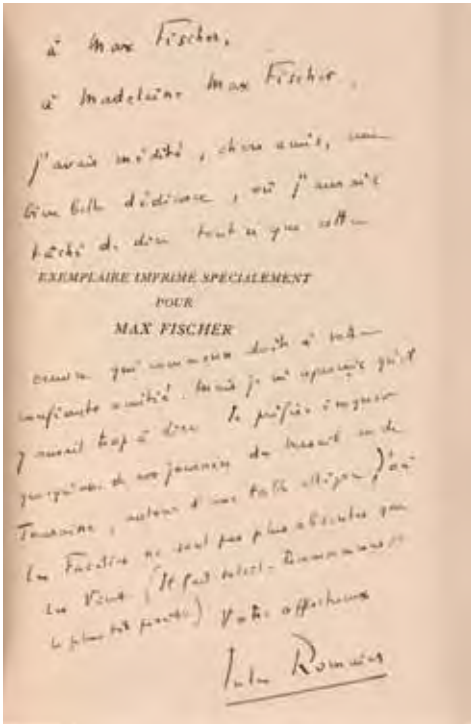 à Max Fischer,
à Madeleine Max Fischer,
J'avais médité, chers amis, une
bien belle dédicace, où j'aurais
tâché de dire tout ce que cette
EXEMPLAIRE IMPRIMÉ SPÉCIALEMENT
POUR
MAX FISCHER
oeuvre qui commence doit à votre
confiante amitié. Mais je m'aperçois qu'il
y aurait trop à dire. Je préfère évoquer
quelqu'une de nos journées de travail en
Touraine, autour d'une table d'où
les Facéties ne sont pas plus absentes que
les Vins. (Il fait soleil. Recommencer
le plus tôt possible) Votre affectueux
Jules Romains